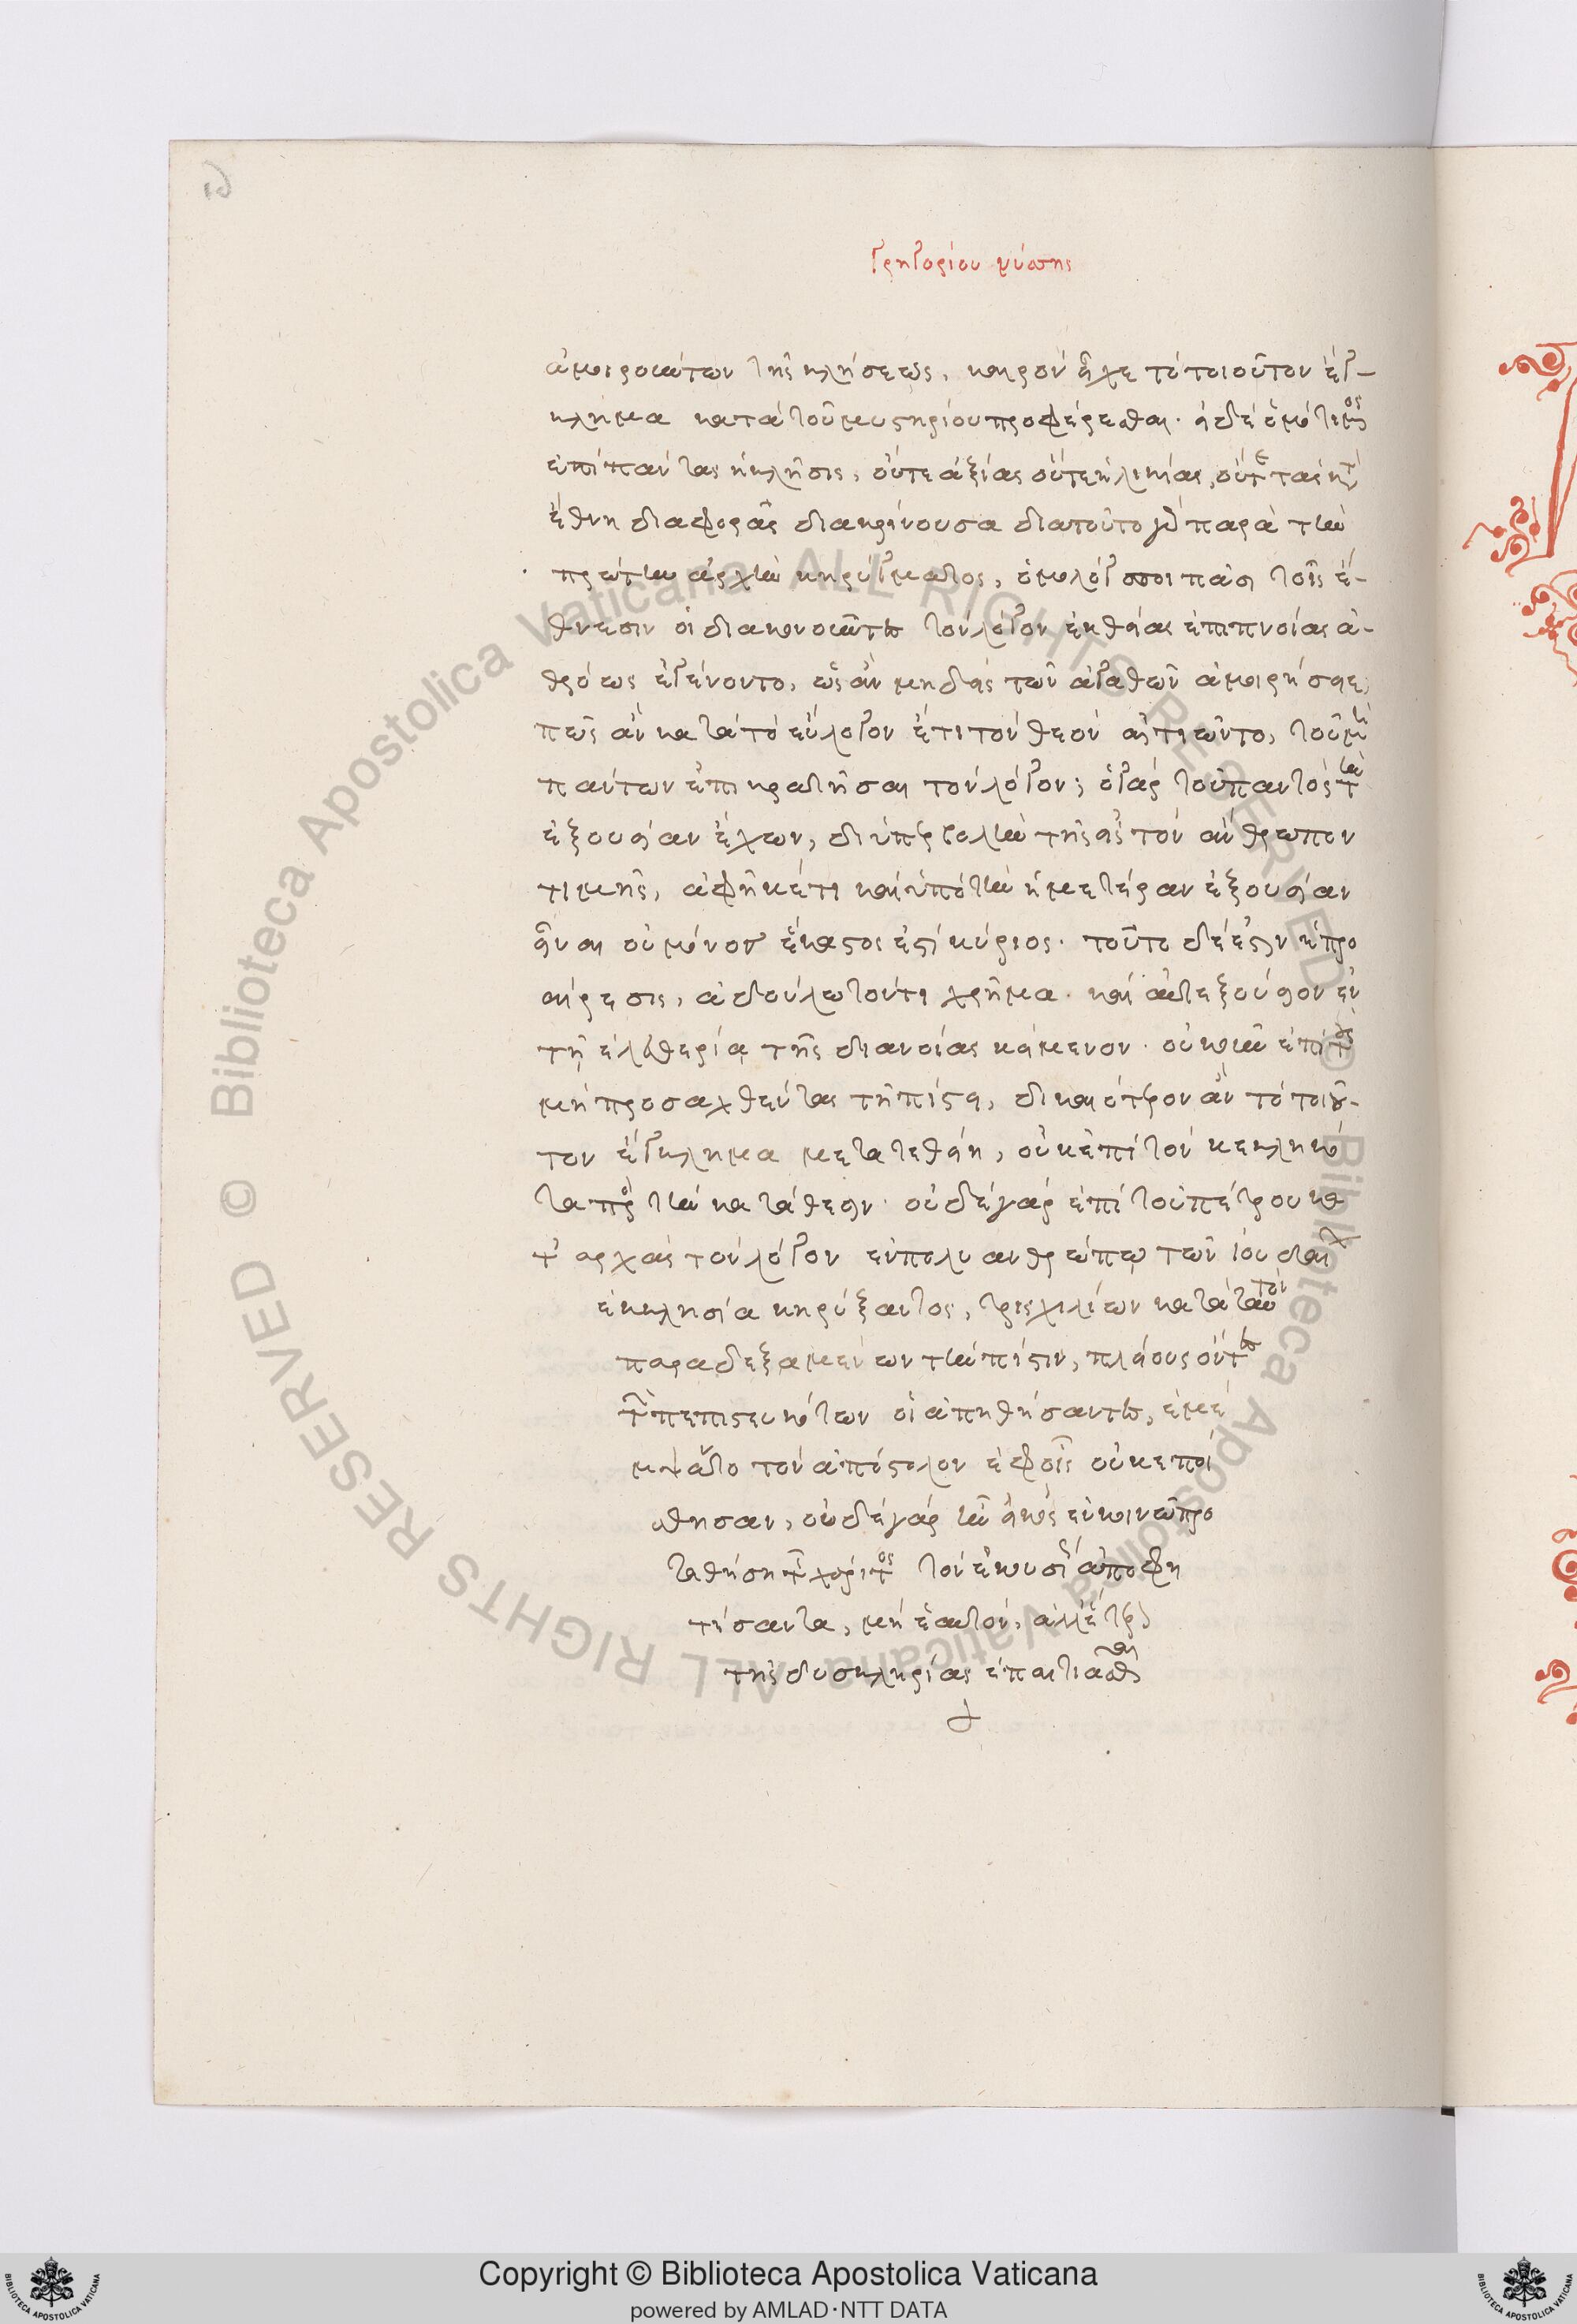 Γρηγορίου νύσης
ἀμοιρούντων τῆς κλήσεως, καιρὸν εἶχε τὸ τοιοῦτον ἔγ-
κλημα κατὰ τοῦ μυστηρίου προφέρεσθαι· εἰ δὲ ὁμότιμος
ἐπὶ πάντας ἡ κλῆσις, οὔτε ἀξίας οὔτε ἡλικίας, οὔτε τὰς κατὰ
ἔθνη διαφορὰς διακρίνουσα διὰ τοῦτο γὰρ παρὰ τὴν
πρώτην ἀρχὴν κηρύγματος, ὁμόγλωσσοι πᾶσι τοῖς ἔ-
θνεσιν οἱ διακονοῦντες τὸν λόγον ἐκ θείας ἐπιπνοίας ἀ-
θρόως ἐγένοντο, ὡς ἂν μηδεὶς τῶν ἀγαθῶν ἀμοιρήσειε,
πῶς ἂν κατὰ τὸ εὔλογον ἔτι τὸν θεὸν αἰτιῶντο, τοῦ μὴ
πάντων ἐπικρατῆσαι τὸν λόγον; ὁ γὰρ τοῦ παντὸς τὴν
ἐξουσίαν ἔχων, δι' ὑπερβολὴν τῆς εἰς τὸν ἄνθρωπον
τιμῆς, ἀφῆκέ τι καὶ ὑπὸ τὴν ἡμετέραν ἐξουσίαν
εἶναι οὗ μόνον ἕκαστος ἐστὶ κύριος· τοῦτο δέ ἐστιν ἡ προ
αίρεσις, ἀδούλωτόν τι χρῆμα· καὶ αὐτεξούσιον ἐν
τῇ ἐλευθερίᾳ τῆς διανοίας κείμενον· οὐκοῦν ἐπὶ τοὺς
μὴ προσαχθέντας τῇ πίστει, δικαιότερον ἂν τὸ τοιοῦ-
τον ἔγκλημα μετατεθείη, οὐκ ἐπὶ τὸν κεκληκό
τα πρὸς τὴν κατάθεσιν· οὐδὲ γὰρ ἐπὶ τοῦ πέτρου κατ
τ ἀρχὰς τὸν λόγον ἐν πολυανθρώπῳ τῶν ἰουδαίων
ἐκκλησία κηρύξαντος, τρισχιλίων κατὰ ταυτὸν
παραδεξαμένων τὴν πίστιν, πλείους ὄντες
τῶν πεπιστευκότων οἱ ἀπειθήσαντες, ἐμέ
μψαντο τὸν ἀπόστολον ἐφ' οἷς οὐκ ἐπεί
σθησαν, οὐδὲ γὰρ ἦν εἰκὸς ἐν κοινῷ προ
τεθείσης τῆς χάριτος τὸν ἑκουσίως ἀποφοι
τήσαντα, μὴ ἑαυτὸν, ἀλλ' ἕτερον
τῆς δυσκληρίας ἐπαιτιᾶσθαι
Copyright © Biblioteca Apostolica Vaticana
powered by AMLAD·NTT DATA